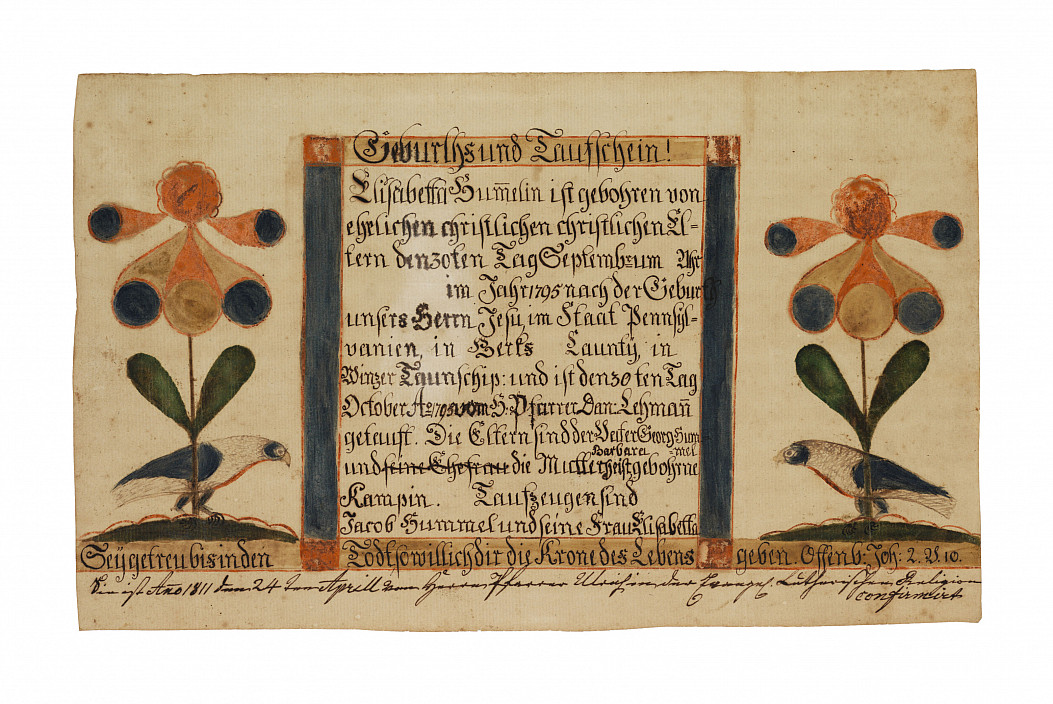 Geburths und Taufschein!
Elisabetha Hum̄elin ist gebohren von
ehelichen christlichen christlichen El-
tern den 30ten Tag Septemb: um Uhr
im Jahr 1795 nach der Geburth
unsers Herrn Jesu, im Staat Pennsyl-
vanien, in Berks Caunty, in
Winzer Taunschip: und ist den 30ten Tag
October Ao 1795 vom H: Pfarrer Dan: Lehman̄
geteufft. Die Eltern sind der Vatter Georg Hum-
mel
Barbara
und seine Ehefrau die Mutter heist gebohrne
Kampin. Taufzeugen sind
Jacob Hummel und seine Frau Elisabetha
Sey getreu bis in den Todt so will ich dir die Krone des Lebens geben. Offenb: Joh: 2. V 10.
Sie ist Ano 1811 den 24ten Aprill vom Herrn Pfarrer Ulrich in der Evangel. Lutherischen Religion
confirmirt